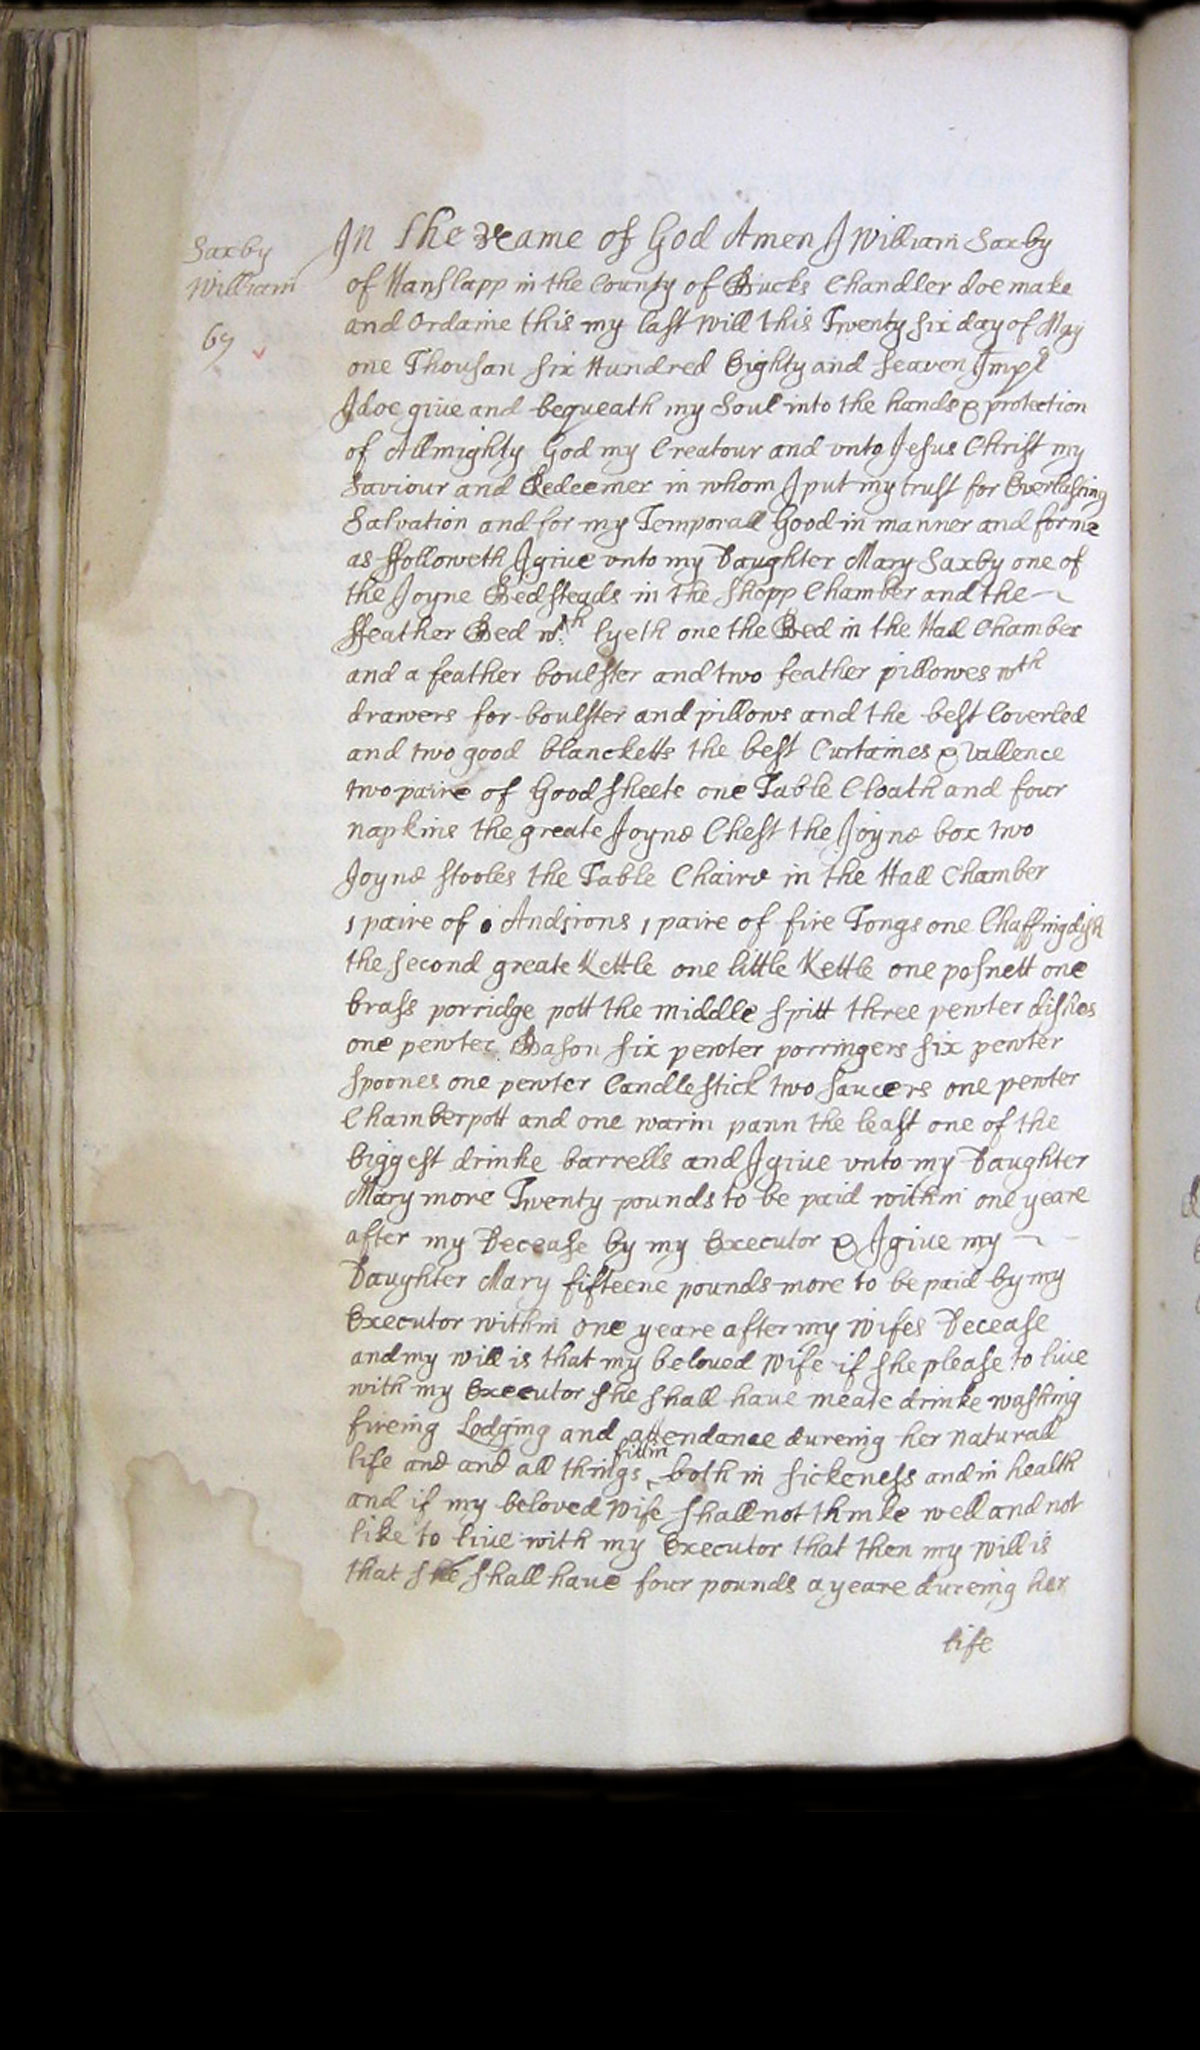 Saxby
William
69
In The Name of God Amen I William Saxby
of Hanslapp in the County of Bucks Chandler doe make
and Ordaine this my last Will this Twenty six day of May
one Thousan six Hundred Eighty and seaven Impl
I doe give and bequeath my Soul into the hands & protection
of Allmighty God my Creatour and vnto Jesus Christ my
Saviour and Redeemer in whom I put my trust for Everlasting
Salvation and for my Temporall Good in manner and forme
as ffolloweth I give vnto my Daughter Mary Saxby one of
the Joyne Bedsteads in the Shopp Chamber and the
ffeather Bed wch lyeth one the Bed in the Hall Chamber
and a feather boulster and two feather pillowes wth
drawers for boulster and pillows and the best Coverled
and two good blancketts the best Curtaines & Vallence
two paire of Good sheets one Table Cloath and four
napkins the greate Joyne Chest the Joyne box two
Joyne stooles the Table Chaire in the Hall Chamber
1 paire of Andirons 1 paire of fire Tongs one Chaffingdish
the second greate Kettle one little Kettle one posnett one
brass porridge pott the middle spitt three pewter dishes
one pewter Bason six pewter porringers six pewter
spoones one pewter Candlestick two saucers one pewter
Chamberpott and one warin pann the least one of the
biggest drinke barrells and I give vnto my Daughter
Mary more Twenty pounds to be paid within one yeare
after my Decease by my Executor & I give my
Daughter Mary fifteene pounds more to be paid by my
Executor within one yeare after my Wifes Decease
and my will is that my beloved Wife if she please to live
with my Executor she shall have meate drinke washing
fireing Lodging and attendance dureing her naturall
life and and all things fittin both in sickeness and in health
and if my beloved Wife shall not thinke well and not
like to live with my Executor that then my Will is
that she shall have four pounds a yeare dureing her
life